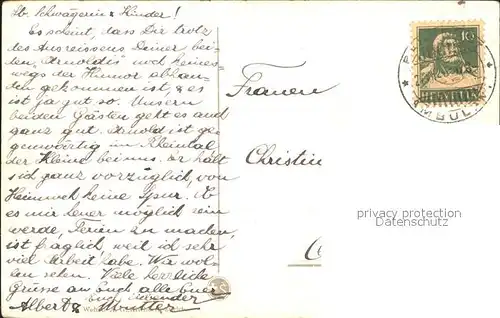 Lb. Schwägerin & Kinder!
Es scheint, dass Dir trotz
des Ausreissens Deiner bei-
den "Arnoldis" noch keines-
wegs der Humor abhan-
den gekommen ist, & es
ist ja gut so. Unsern
beiden Gästen geht es auch
ganz gut. Arnold ist ge-
genwärtig im Rheintal
der Kleine bei uns. Er hält
sich ganz vorzüglich, von
Heimweh keine Spur. Ob
es mir heuer möglich sein
werde, Ferien zu machen,
ist fraglich, weil ich sehr
viel Arbeit habe. Wir wol-
len sehen. Viele herzliche
Grüsse an Euch alle Euer
Euch liebender
Albert & Mutter
Frauen
Christin
10
HELVETIA
AMBULANT
privacy protection
Datenschutz